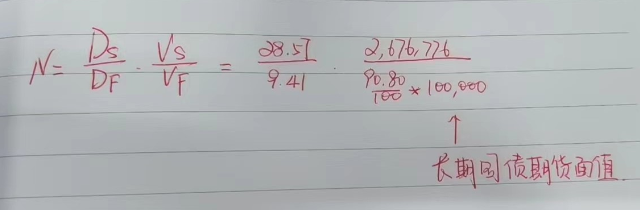 N = Ds/DF · Vs/VF = 28.57/9.41 · 2,676,776/(90.80/100 * 100,000)
↑
长期国债期货面值